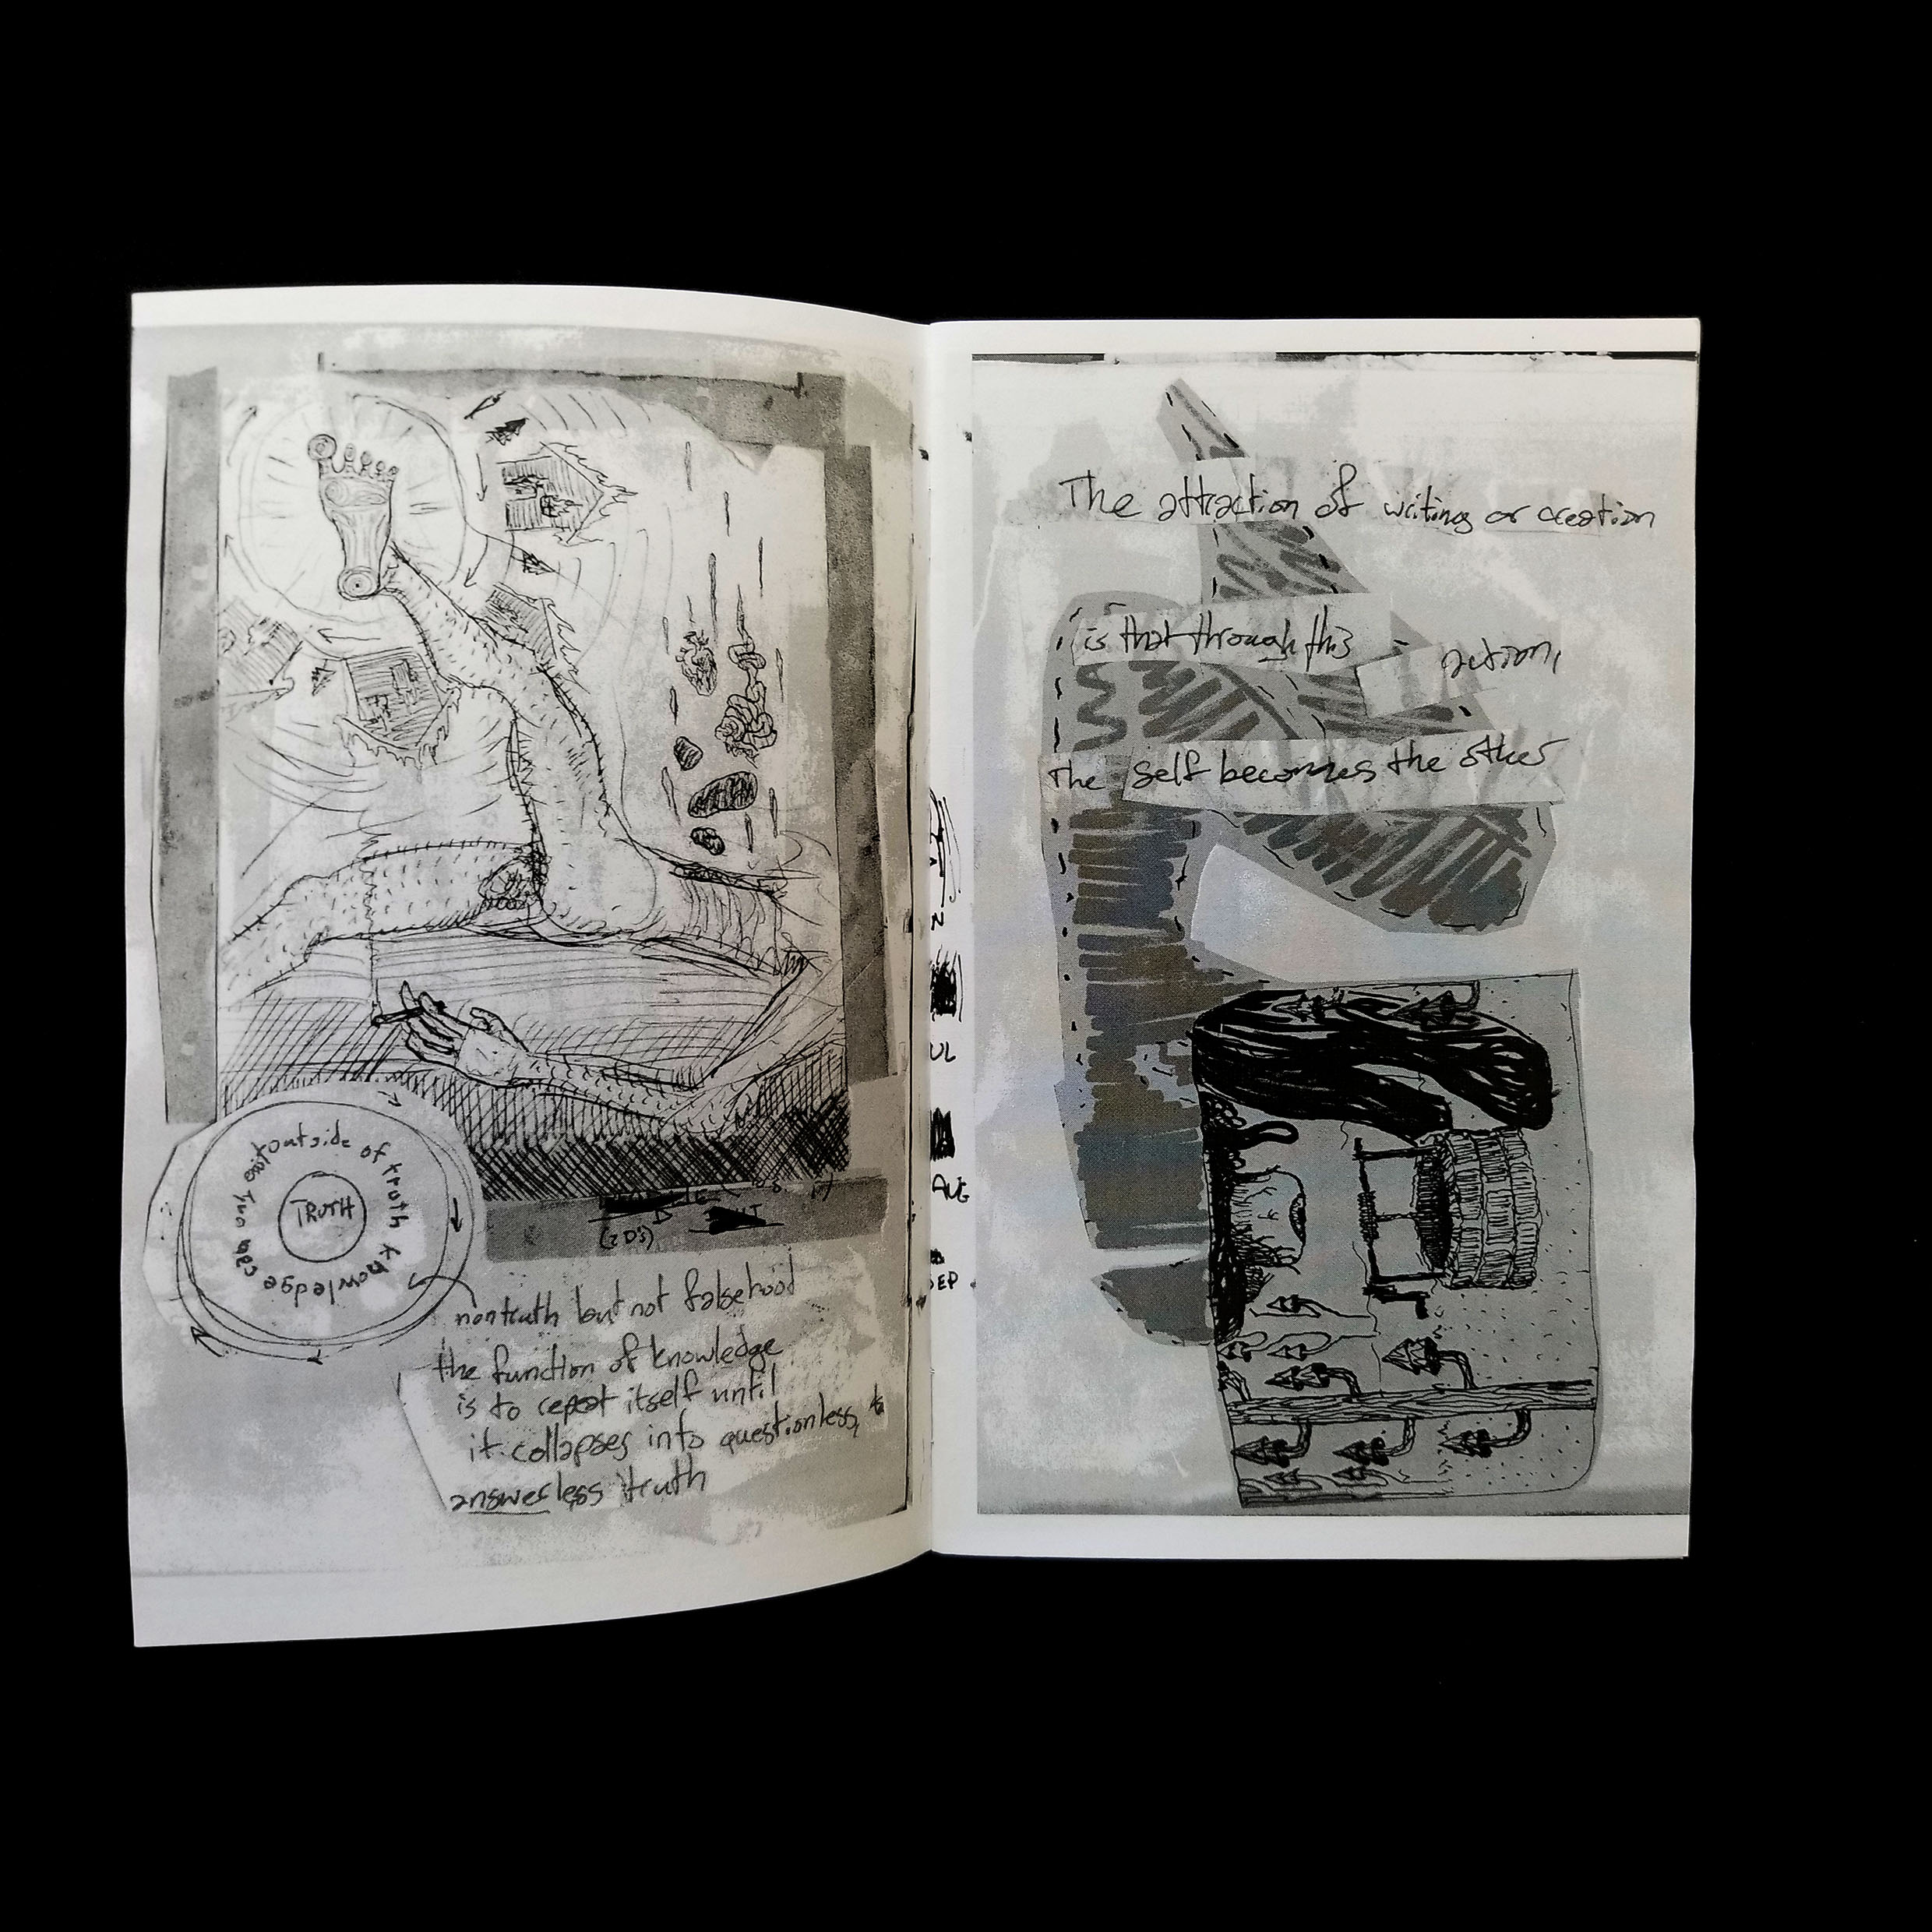 TRUTH
knowledge can exist outside of truth
(2D's)
nontruth but not falsehood
the function of knowledge
is to repeat itself until
it collapses into questionless,
answerless truth
N
UL
AUG
SEP
The attraction of writing or creation
is that through this action,
The self becomes the other